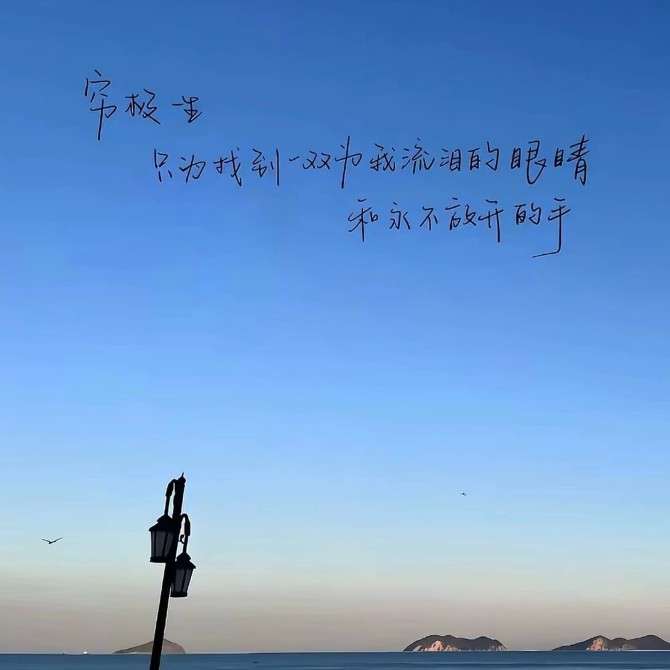 穷极一生
只为找到一双为我流泪的眼睛
和永不放开的手